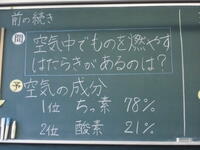 前の続き
問 空気中でものを燃やす
はたらきがあるのは?
予 空気の成分
1位 ちっ素 78%
2位 酸素 21%